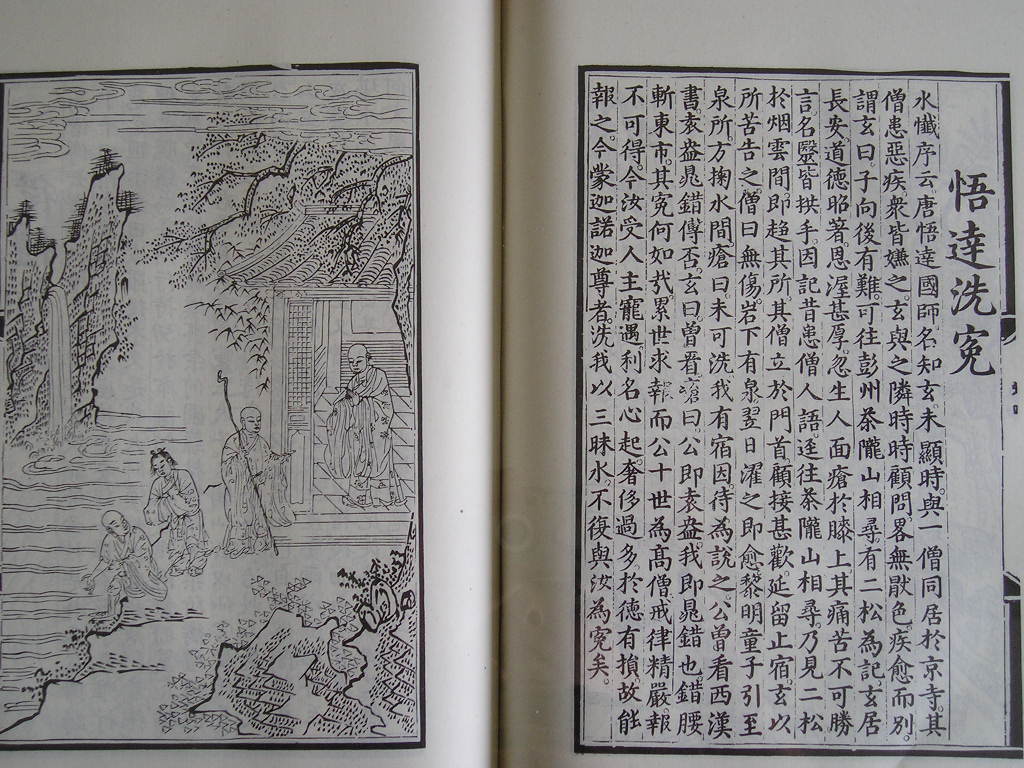 悟達洗冤
水懺序云唐悟達國師名知玄未顯時與一僧同居於京寺其
僧患惡疾衆皆嫌之玄與之隣時時顧問畧無厭色疾愈而別
謂玄曰子向後有難可往彭州茶隴山相尋有二松為記玄居
長安道德昭著恩渥甚厚忽生人面瘡於膝上其痛苦不可勝
言名毉皆拱手因記昔患僧人語逕往茶隴山相尋乃見二松
於烟雲間即趍其所其僧立於門首顧接甚歡延留止宿玄以
所苦告之僧曰無傷岩下有泉翌日濯之即愈黎明童子引至
泉所方掬水間瘡曰未可洗我有宿因待為說之公曾看西漢
書袁盎晁錯傳否玄曰曾看瘡曰公即袁盎我即晁錯也錯腰
斬東市其冤何如我累世求報而公十世為高僧戒律精嚴報
不可得今汝受人主寵遇利名心起奢侈過多於德有損故能
報之今蒙迦諾迦尊者洗我以三昧水不復與汝為冤矣